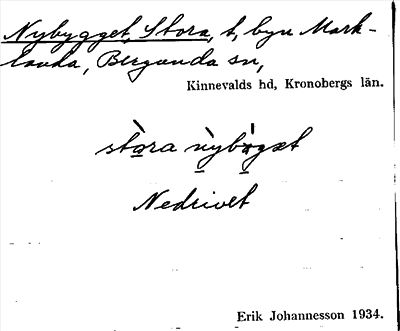 Nybygget, Stora, t, byn Mark-
landa, Bergunda sn,
Kinnevalds hd, Kronobergs län.
stora nybygæt
Nedrivet
Erik Johannesson 1934.